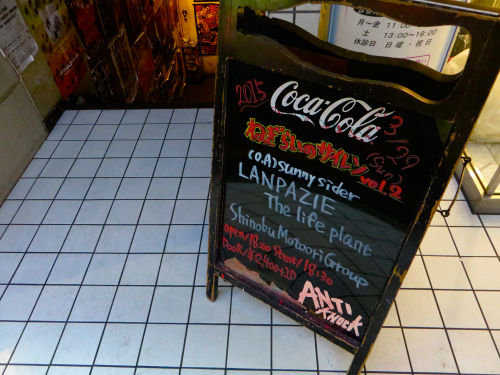 月～金 11:00
土 13:00～19:00
休診日 日曜・祝日
2015
Coca-Cola
3/29
(Sun)
ねぎらいのサイレン
vol.2
(O.A) Sunny sider
LANPAZIE
The life plant
Shinobu Motoori Group
open/18:00 Start/18:30
Door/¥2,400+2D
ANTI
KNOCK